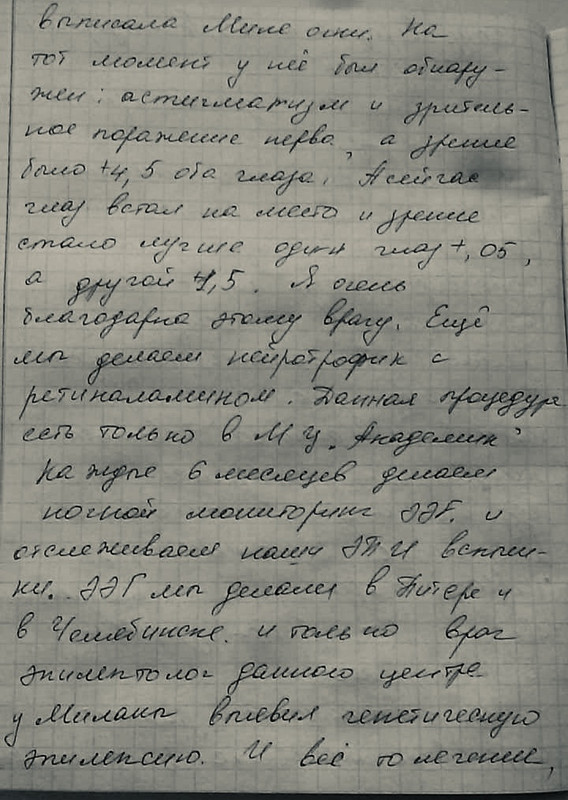 выписала Миле очки. На
тот момент у неё был обнару-
жен: астигматизм и зритель-
ное поражение нерва, а зрение
было +4,5 оба глаза. А сейчас
глаз встал на место и зрение
стало лучше один глаз +,05,
а другой +1,5. Я очень
благодарна этому врачу. Ещё
мы делаем нейротрофик с
ретиналамином. Данная процедура
есть только в МЦ „Академик"
Каждые 6 месяцев делаем
ночной мониторинг ЭЭГ. и
отслеживаем наши ЭТИ вспыш-
ки. ЭЭГ мы делали в Питере и
в Челябинске. и только врач
эпилептолог данного центра
у Миланы выявил генетическую
эпилепсию. И всё то лечение,